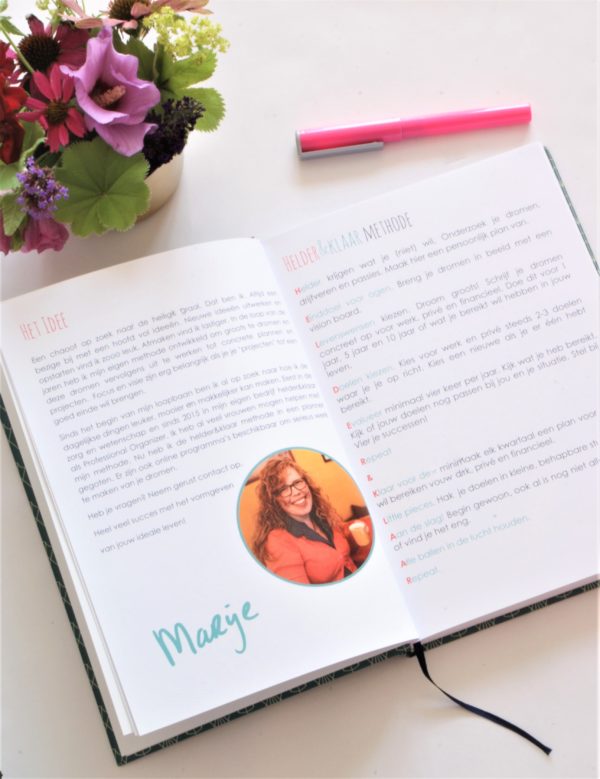 HET IDEE
Een chaoot op zoek naar de heilige graal. Dat ben ik. Altijd
bezig met een hoofd vol ideeën. Nieuwe ideeën uitwerken en
opstarten vind ik zooo leuk. Afmaken vind ik lastiger. In de loop van de
jaren heb ik mijn eigen methode ontwikkeld om groots te dromen en
deze dromen vervolgens uit te werken tot concrete plannen en
projecten. Focus en visie zijn erg belangrijk als je je 'projecten' tot een
goed einde wil brengen.
Sinds het begin van mijn loopbaan ben ik al op zoek naar hoe ik de
dagelijkse dingen leuker, mooier en makkelijker kan maken. Eerst in de
zorg en wetenschap en sinds 2015 in mijn eigen bedrijf helder&klaar
als Professional Organizer. Ik heb al veel vrouwen mogen helpen met
mijn methode. Nu heb ik de helder&klaar methode in een planner
gegoten. Er zijn ook online programma's beschikbaar om steeds weer
te maken van je dromen.
Heb je vragen? Neem gerust contact op.
Heel veel succes met het vormgeven
van jouw ideale leven!
Marije
HELDER&KLAAR METHODE
Helder krijgen wat je (niet) wil. Onderzoek je dromen,
drijfveren en passies. Maak hier een persoonlijk plan van.
Einddoel voor ogen. Breng je dromen in beeld met een
vision board.
Levenswensen kiezen. Droom groots! Schrijf je dromen
concreet op voor werk, privé en financieel. Doe dit voor 1
jaar, 5 jaar en 10 jaar of wat je bereikt wil hebben in jouw
Doelen kiezen. Kies voor werk en privé steeds 2-3 doelen
waar je je op richt. Kies een nieuwe als je er één hebt
bereikt.
Evalueer minimaal vier keer per jaar. Kijk wat je heb bereikt.
Kijk of jouw doelen nog passen bij jou en je situatie. Stel bij
Vier je successen!
Repeat
&
Klaar voor de minimaal elk kwartaal een plan voor
wil bereiken vouw privé en financieel.
Little pieces. Hak je doelen in kleine, behapbare
Aan de slag! Begin gewoon, ook al is nog niet
of vind je het eng.
Alle ballen in de lucht houden.
Repeat.